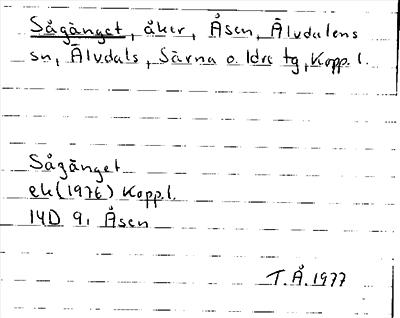 Sågänget, åker, Åsen, Älvdalens
sn, Älvdals, Särna o. Idre tg, Kopp. l.
Sågänget
ek (1976) Kopp. l.
14D 9i Åsen
T.Å. 1977